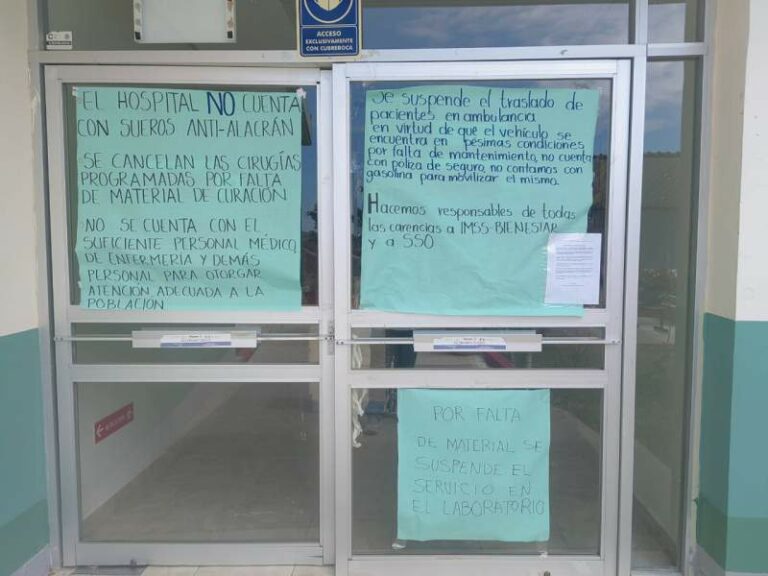 ACCESO
EXCLUSIVAMENTE
CON CUBREBOCA
EL HOSPITAL NO CUENTA
CON SUEROS ANTI-ALACRÁN
SE CANCELAN LAS CIRUGÍAS
PROGRAMADAS POR FALTA
DE MATERIAL DE CURACIÓN
NO SE CUENTA CON EL
SUFICIENTE PERSONAL MÉDICO,
DE ENFERMERIA Y DEMÁS
PERSONAL PARA OTORGAR
ATENCIÓN ADECUADA A LA
POBLACIÓN
Se suspende el traslado de
pacientes en ambulancia
en virtud de que el vehículo se
encuentra en pésimas condiciones
por falta de mantenimiento, no cuenta
con póliza de seguro, no contamos con
gasolina para movilizar el mismo.
Hacemos responsables de todas
las carencias a IMSS-BIENESTAR
y a SSO
POR FALTA
DE MATERIAL SE
SUSPENDE EL
SERVICIO EN
EL LABORATORIO